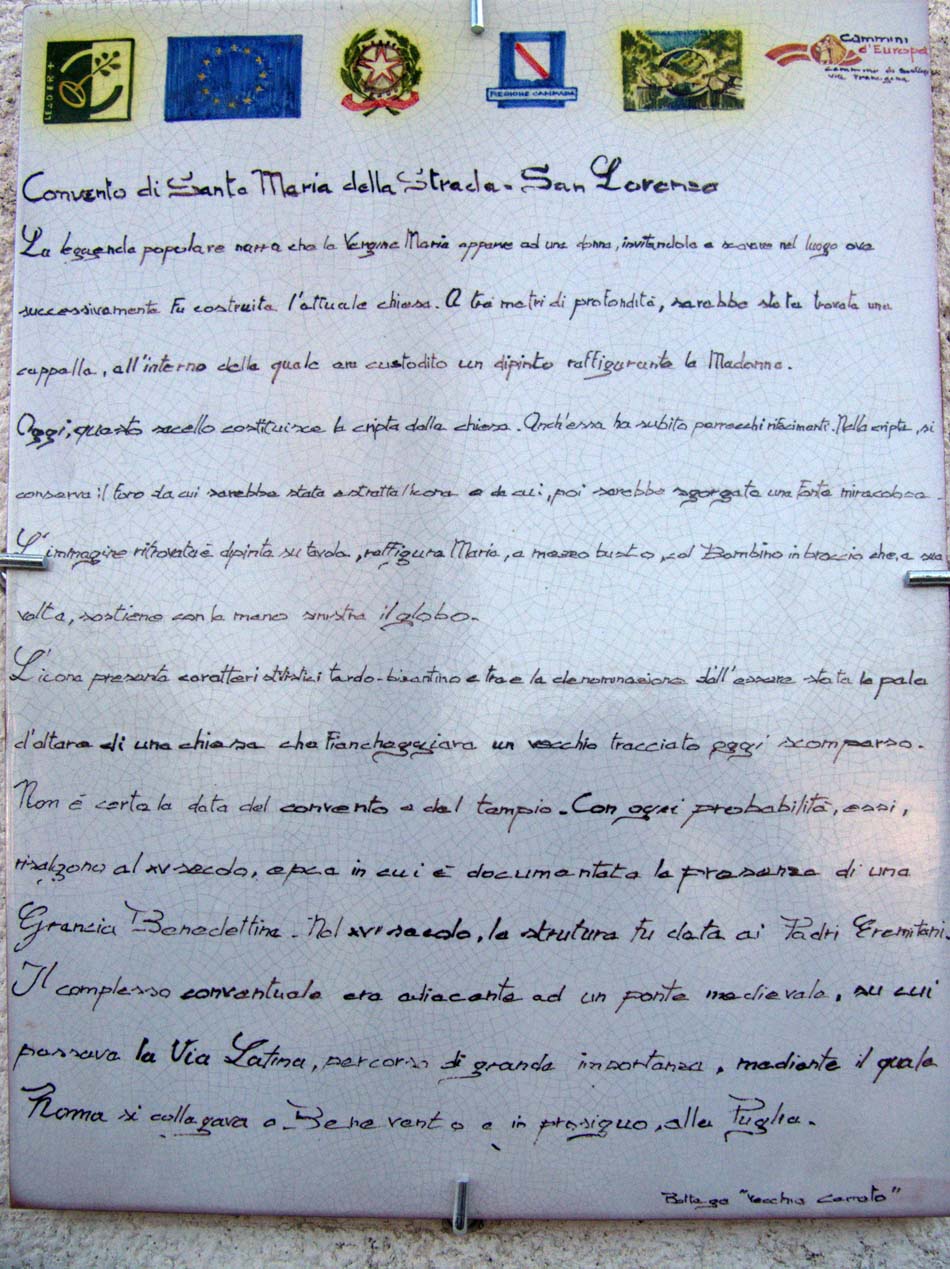 LEADER+
REGIONE CAMPANIA
Cammini
d'Europa
Cammino di Santiago
Via Francigena
Convento di Santa Maria della Strada - San Lorenzo
La leggenda popolare narra che la Vergine Maria apparve ad una donna, invitandola a scavare nel luogo ove
successivamente fu costruita l'attuale chiesa. A tre metri di profondità, sarebbe stata trovata una
cappella, all'interno della quale era custodito un dipinto raffigurante la Madonna.
Oggi, questo sacello costituisce la cripta della chiesa. Anch'essa ha subito parecchi rifacimenti. Nella cripta, si
conserva il foro da cui sarebbe stata estratta l'icona e da cui, poi sarebbe sgorgata una fonte miracolosa.
L'immagine ritrovata è dipinta su tavola, raffigura Maria, a mezzo busto, col Bambino in braccio che, a sua
volta, sostiene con la mano sinistra il globo.
L'icona presenta caratteri stilistici tardo-bizantino e trae la denominazione dall'essere stata la pala
d'altare di una chiesa che fiancheggiava un vecchio tracciato oggi scomparso.
Non è certa la data del convento e del tempio. Con ogni probabilità, essi,
risalgono al XV secolo, epoca in cui è documentata la presenza di una
Grancia Benedettina. Nel XVI secolo, la strutura fu data ai Padri Eremitani.
Il complesso conventuale era adiacente ad un ponte medievale, su cui
passava la Via Latina, percorso di grande importanza, mediante il quale
Roma si collegava a Benevento e in prosieguo, alla Puglia.
Bottega "Vecchio Cerreto"